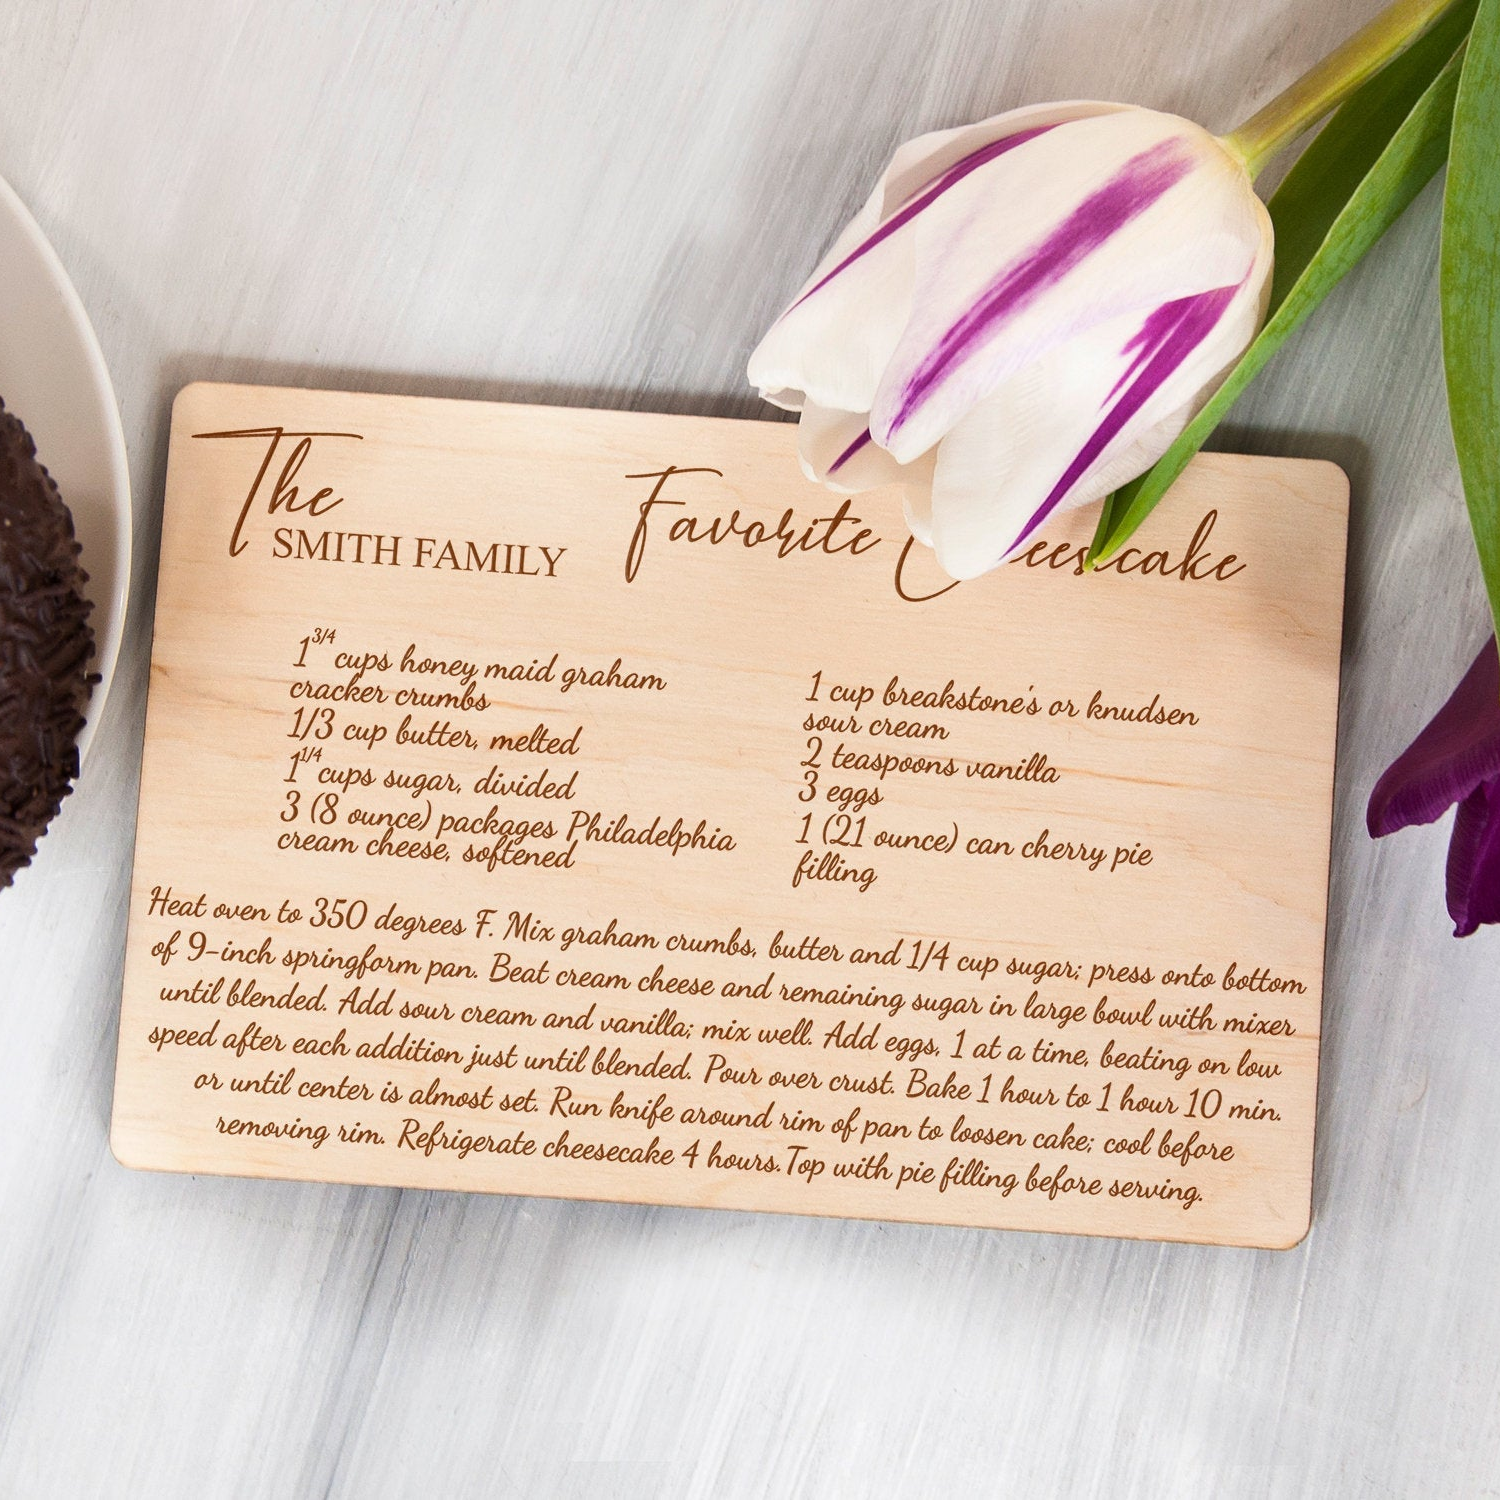 The
SMITH FAMILY
Favorite Cheesecake
1 3/4 cups honey maid graham
cracker crumbs
1/3 cup butter, melted
1 1/4 cups sugar, divided
3 (8 ounce) packages Philadelphia
cream cheese, softened
1 cup breakstone's or knudsen
sour cream
2 teaspoons vanilla
3 eggs
1 (21 ounce) can cherry pie
filling
Heat oven to 350 degrees F. Mix graham crumbs, butter and 1/4 cup sugar; press onto bottom
of 9-inch springform pan. Beat cream cheese and remaining sugar in large bowl with mixer
until blended. Add sour cream and vanilla; mix well. Add eggs, 1 at a time, beating on low
speed after each addition just until blended. Pour over crust. Bake 1 hour to 1 hour 10 min.
or until center is almost set. Run knife around rim of pan to loosen cake; cool before
removing rim. Refrigerate cheesecake 4 hours.Top with pie filling before serving.